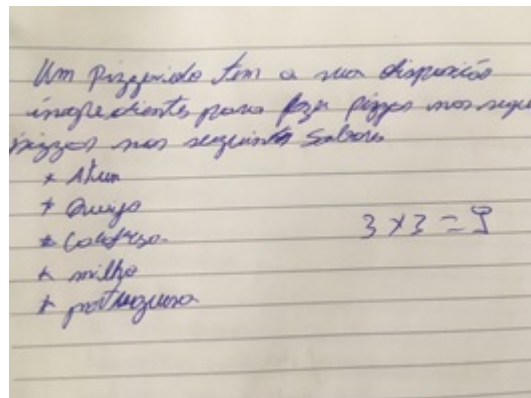 Um Pizzaiolo tem a sua disposição
ingredientes para fazer pizzas nas
pizzas nos seguintes Sabores
* Atum
* Queijo
* Calabresa
* milho
* portuguesa
3 x 3 = 9